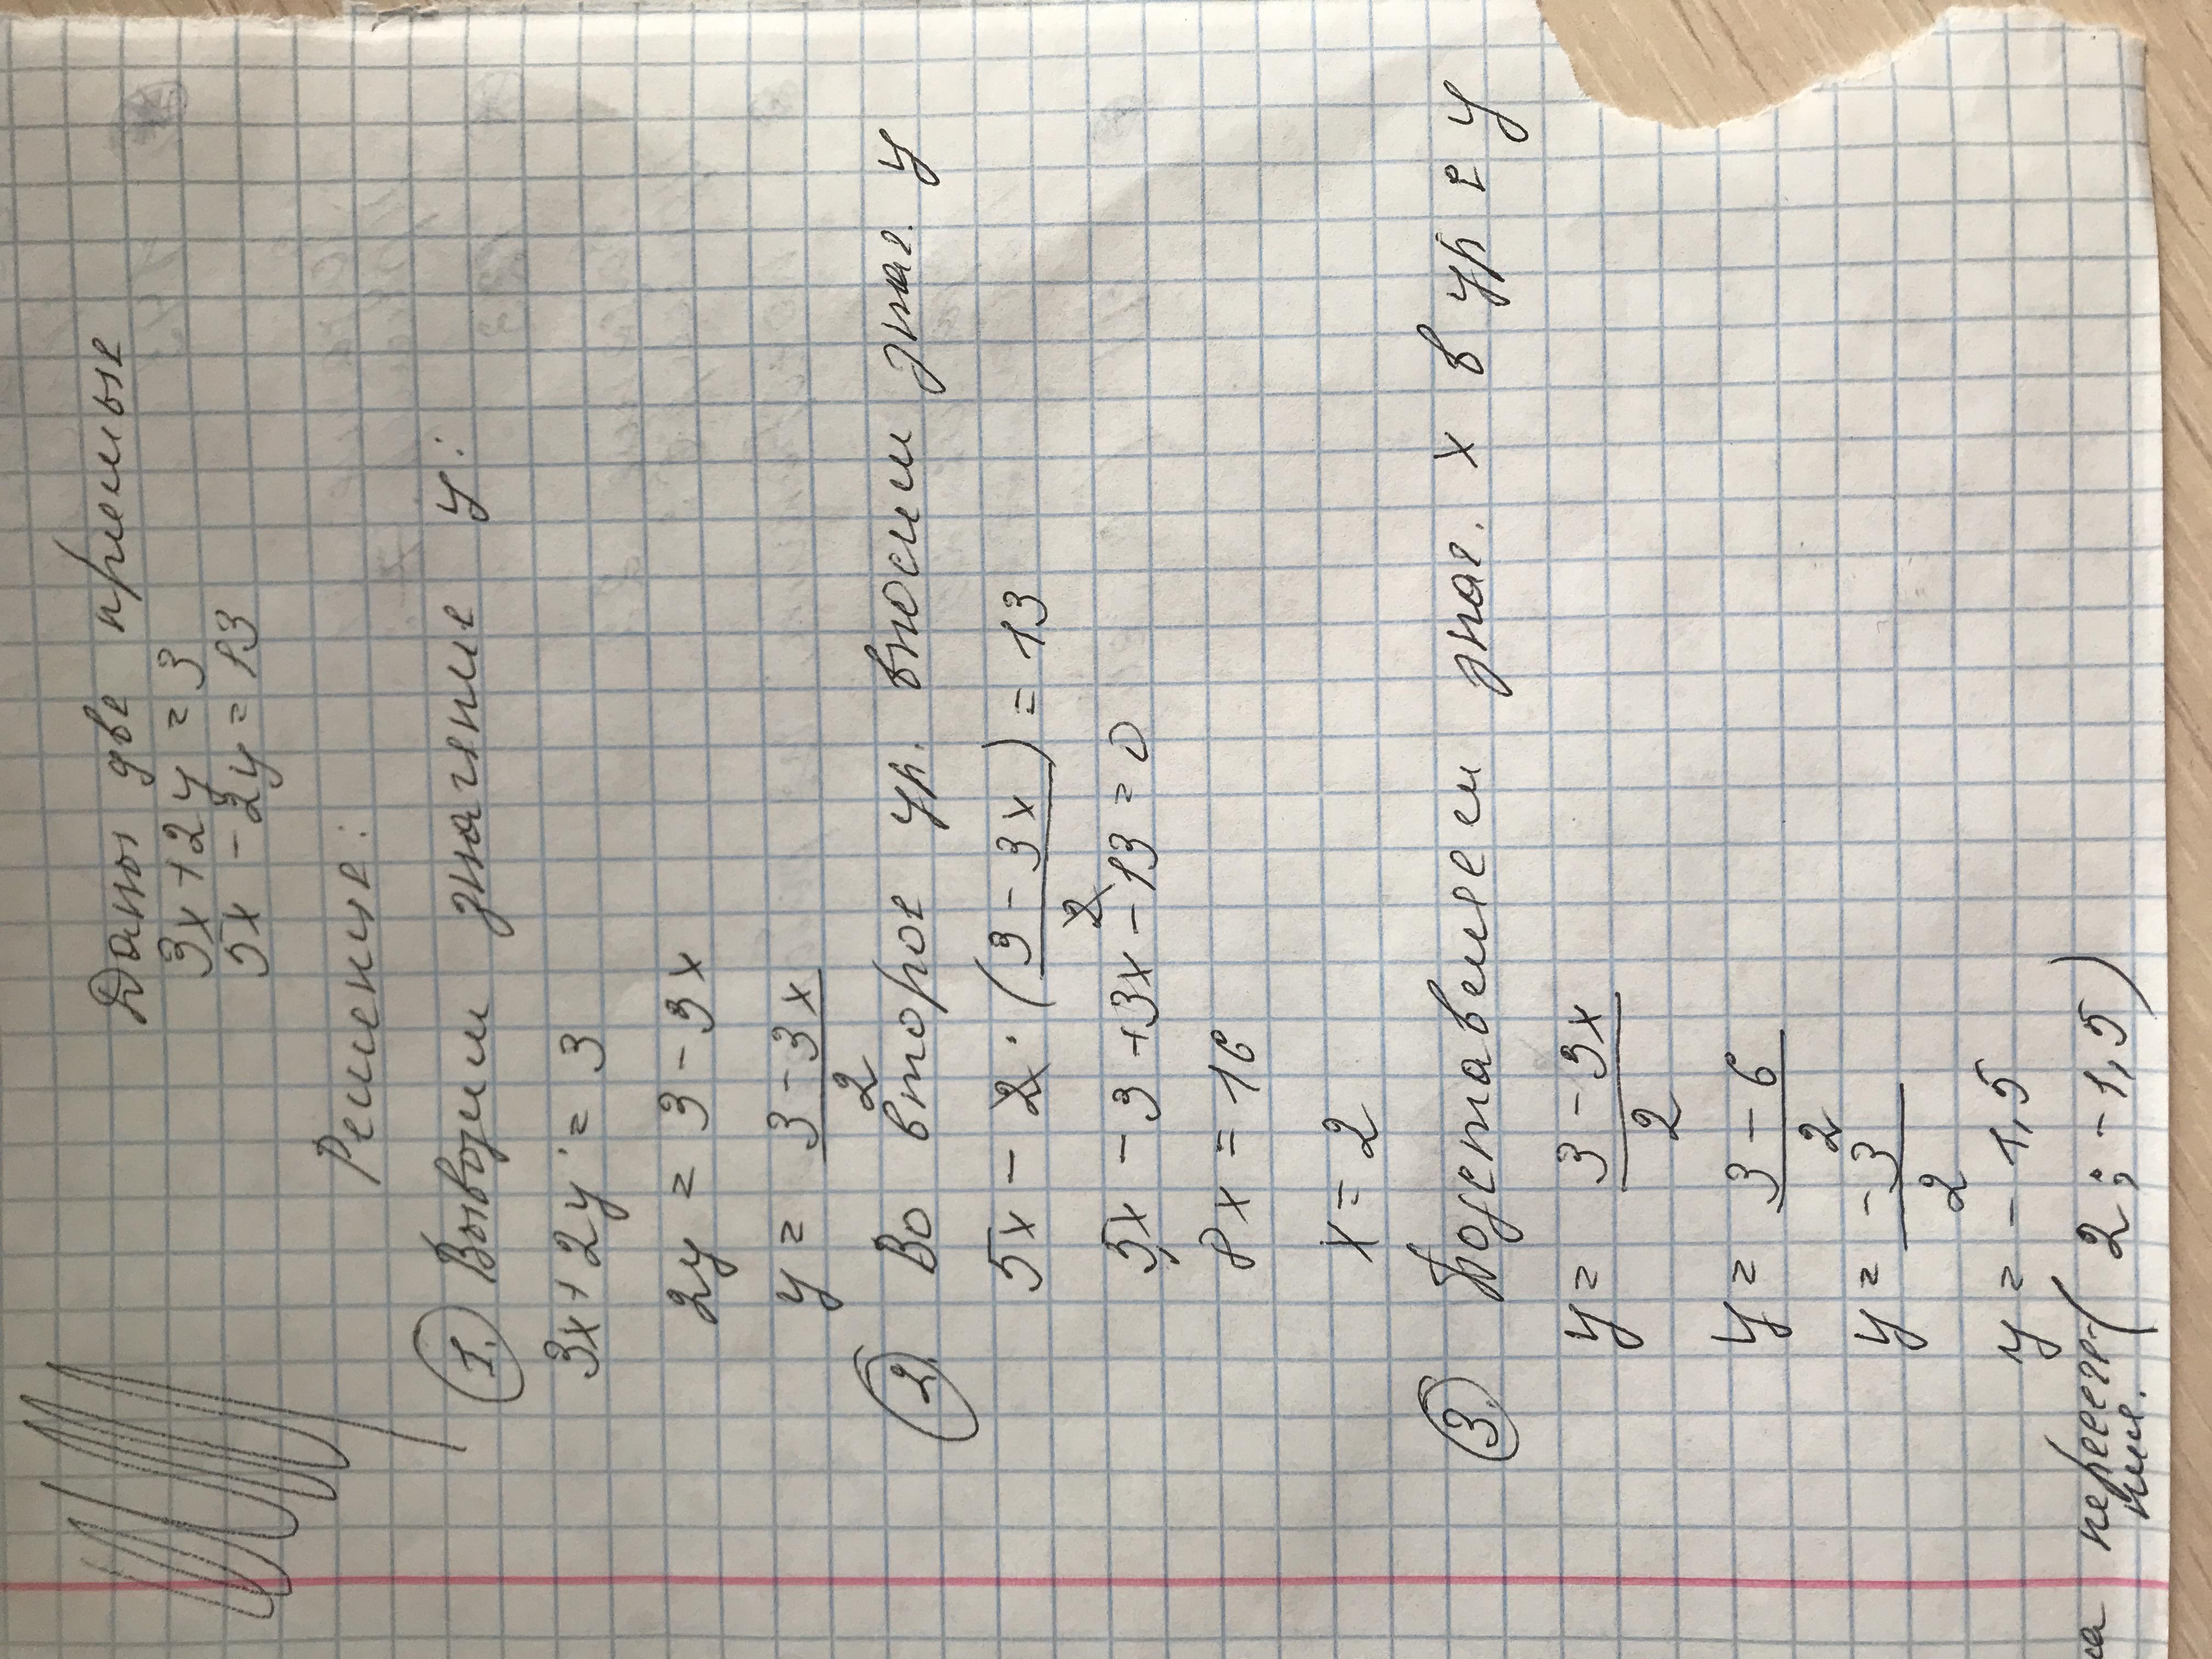 Даны две прямые
3x + 2y = 3
5x - 2y = 13
Решение:
1. Выводим значение y:
3x + 2y = 3
2y = 3 - 3x
y = (3 - 3x)/2
2. Во второе ур. вносим знач. y
5x - 2 · (3 - 3x)/2 = 13
5x - 3 + 3x - 13 = 0
8x = 16
x = 2
3. Подставляем знач. x в ур е y
y = (3 - 3x)/2
y = (3 - 6)/2
y = -3/2
y = - 1,5
ка пересече- (2; -1,5)
ния.